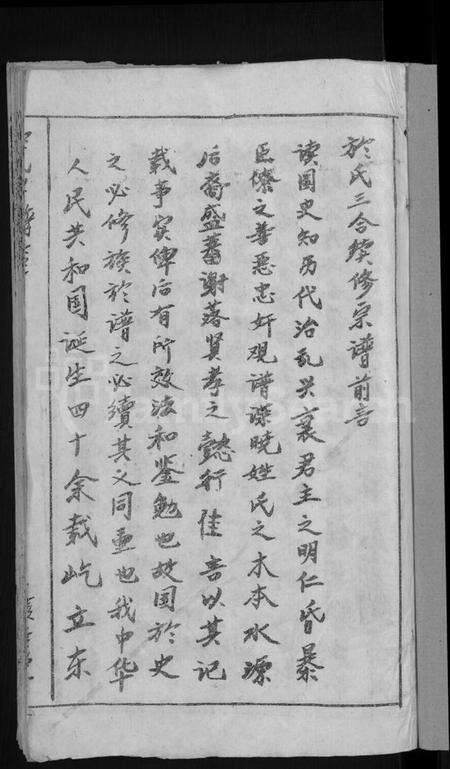 於氏三合续修宗谱前言
读国史知历代治乱兴衰君主之明仁昏暴
臣僚之善恶忠奸观谱谍晓姓氏之木本水源
后裔盛蕃谢落贤孝之懿行佳言以其记
载事实俾后有所效法和鉴勉也故国於史
之必修族於谱之必續其义同重也我中华
人民共和国诞生四十余载屹立东